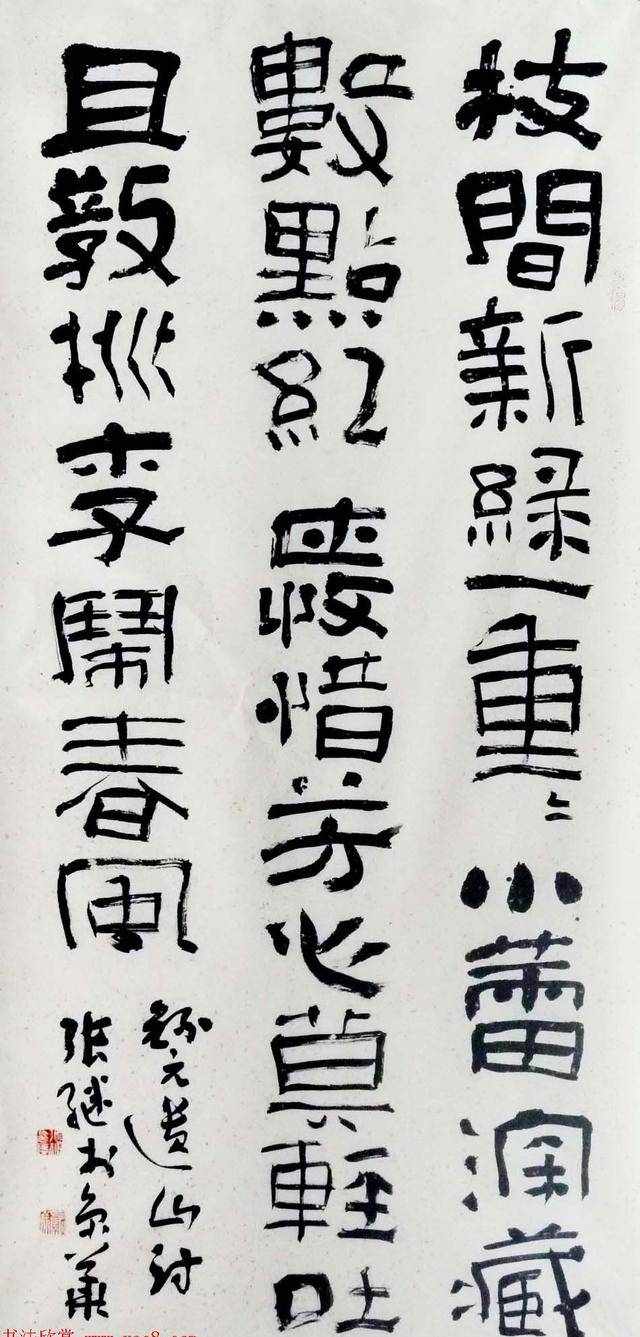 枝間新緑一重〻小蕾深藏
數點紅愛惜芳心莫輕吐
且教桃李鬧春風
錄元遺山詩
張繼书京華
书法欣赏 www.yac8.com